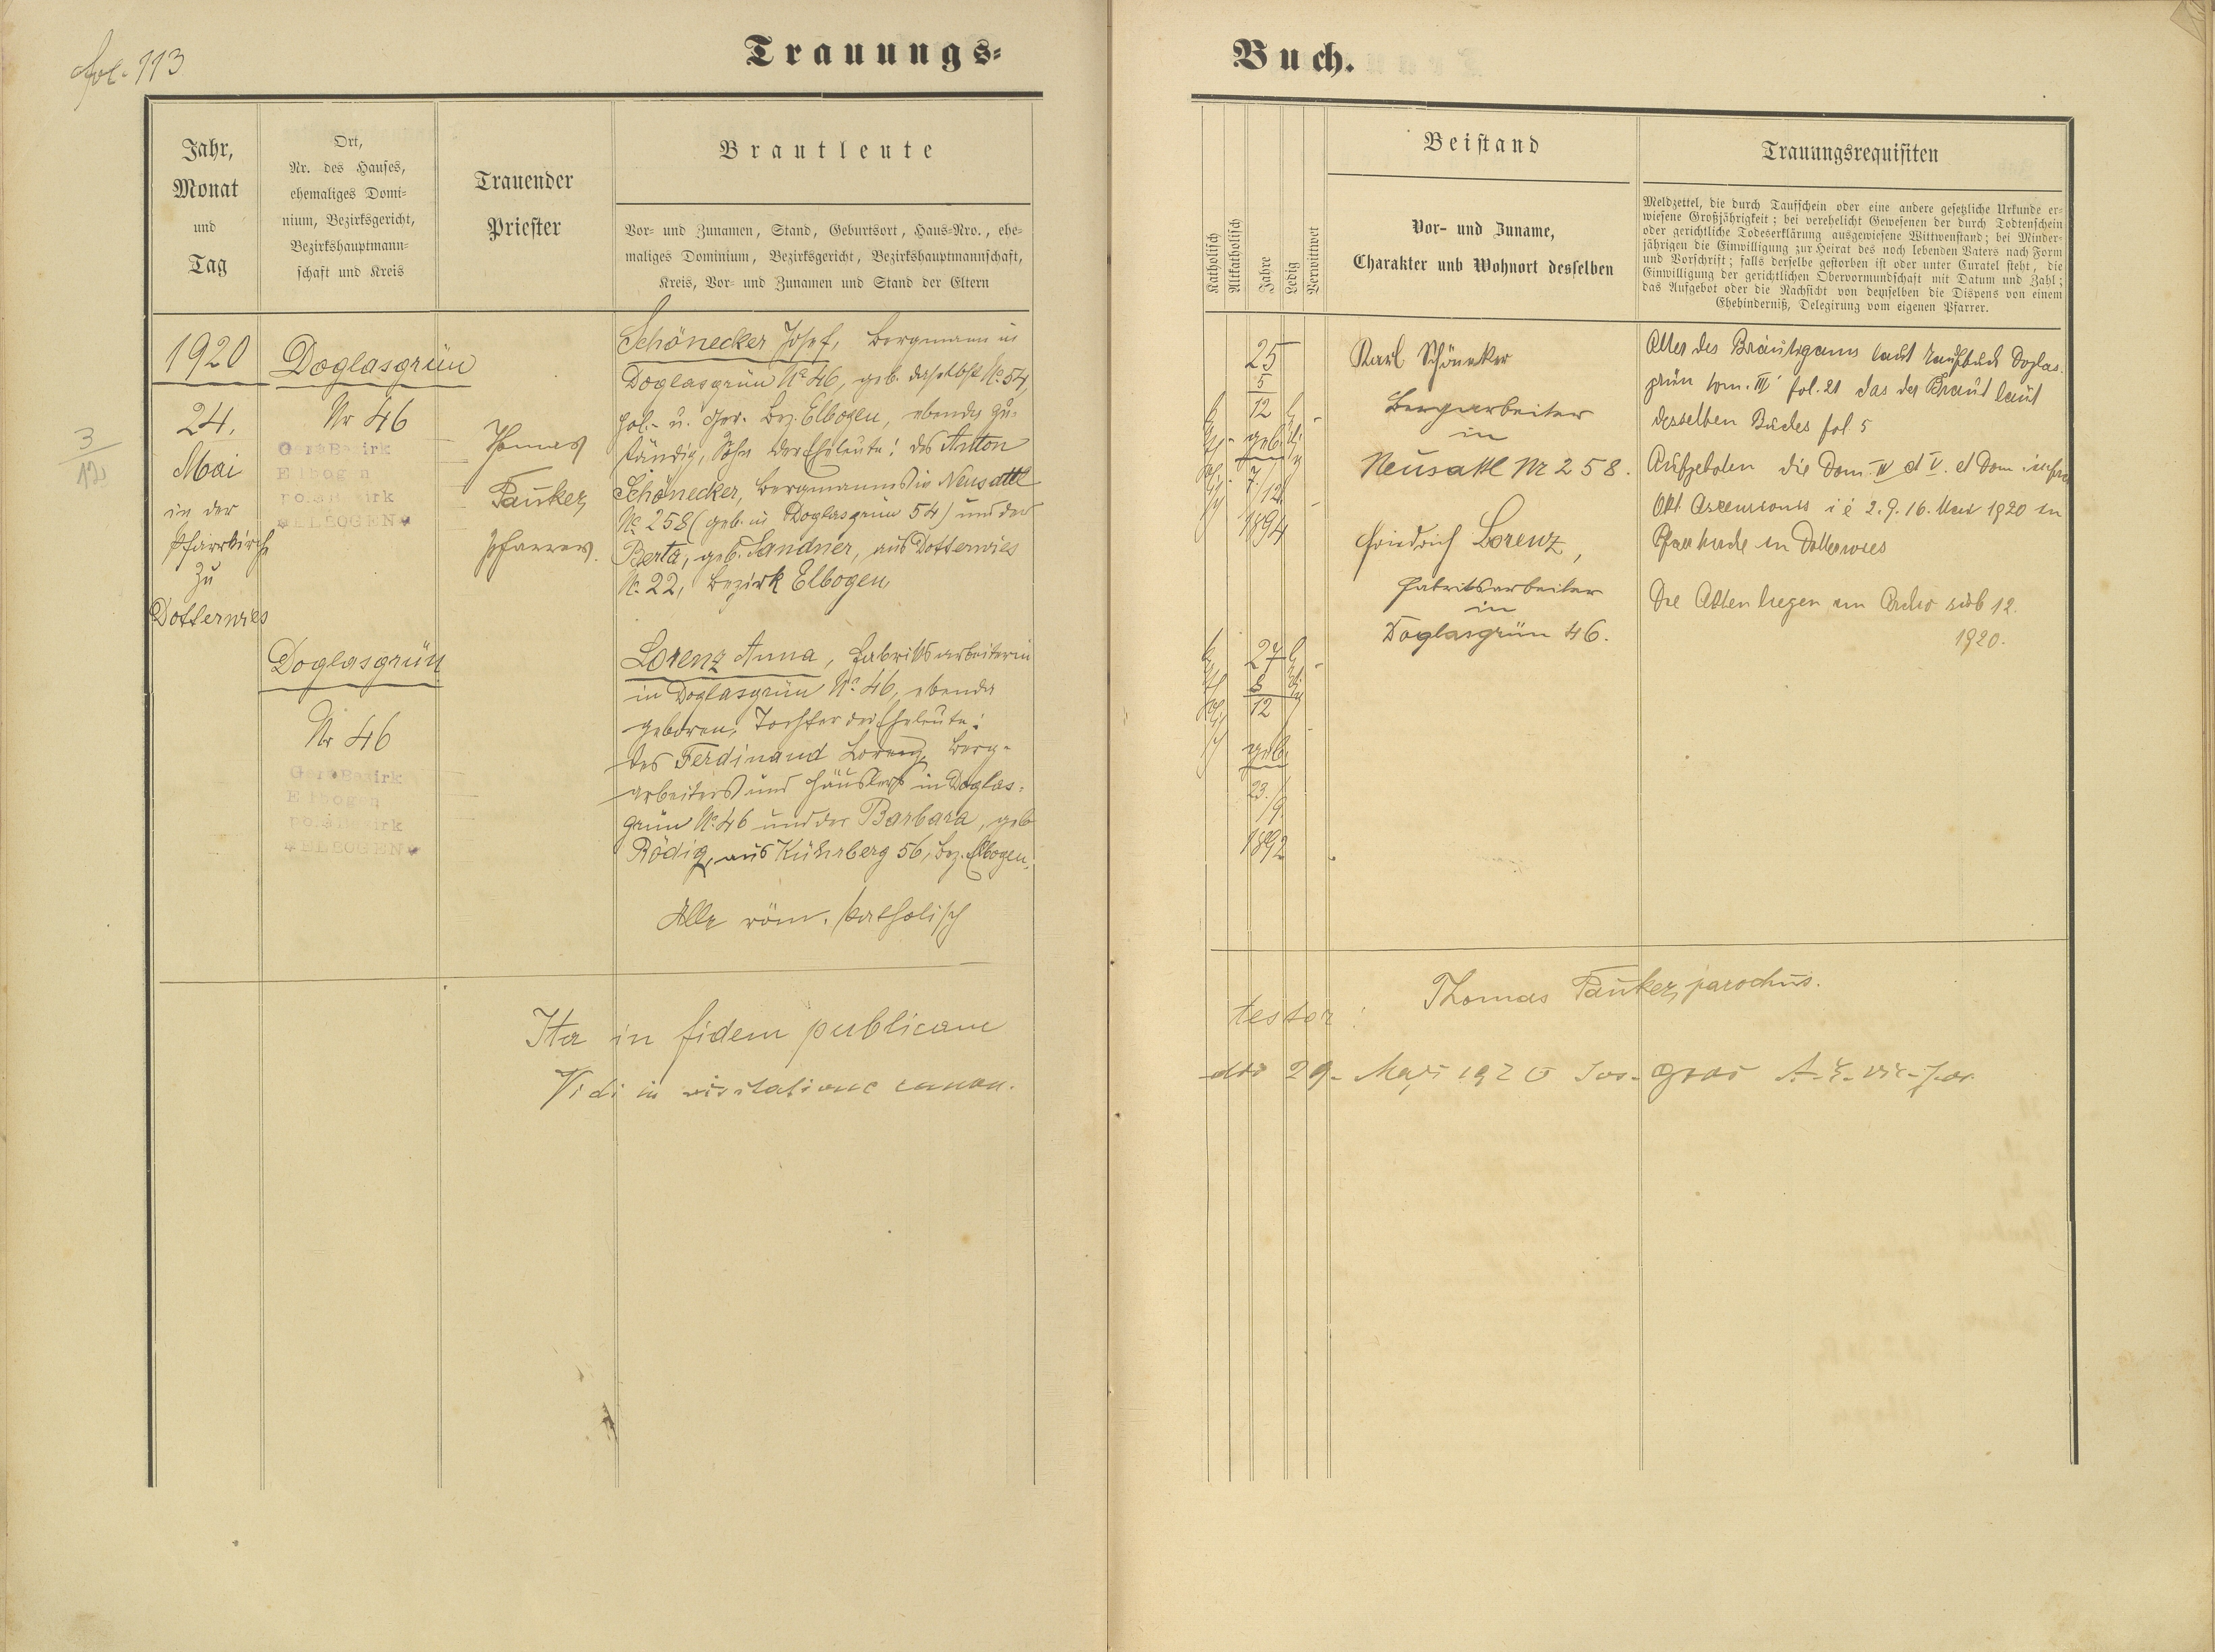 fol. 113
Trauungs-
Buch.
Jahr,
Monat
und
Tag
Ort,
Nr. des Hauses,
ehemaliges Domi-
nium, Bezirksgericht,
Bezirkshauptmann-
schaft und Kreis
Trauender
Priester
Brautleute
Vor- und Zunamen, Stand, Geburtsort, Haus-Nro., ehe-
maliges Dominium, Bezirksgericht, Bezirkshauptmannschaft,
Kreis, Vor- und Zunamen und Stand der Eltern
Katholisch
Altkatholisch
Jahre
Ledig
Verwittwet
Beistand
Vor- und Zuname,
Charakter und Wohnort desselben
Trauungsrequisiten
Meldzettel, die durch Taufschein oder eine andere gesetzliche Urkunde er-
wiesene Großjährigkeit; bei verehelicht Gewesenen der durch Todtenschein
oder gerichtliche Todeserklärung ausgewiesene Wittwenstand; bei Minder-
jährigen die Einwilligung zur Heirat des noch lebenden Vaters nach Form
und Vorschrift; falls derselbe gestorben ist oder unter Curatel steht, die
Einwilligung der gerichtlichen Obervormundschaft mit Datum und Zahl;
das Aufgebot oder die Nachsicht von demselben die Dispens von einem
Ehehinderniß, Delegirung vom eigenen Pfarrer.
3
12
1920
24.
Mai
in der
Pfarrkirche
zu
Dotterwies
Doglasgrün
Nr 46
Ger. Bezirk
Elbogen
pol. Bezirk
*ELBOGEN*
Doglasgrün
Nr 46
Ger. Bezirk
Elbogen
pol. Bezirk
*ELBOGEN*
Thomas
Pauker,
Pfarrer.
Schönecker Josef, Bergmann in
Doglasgrün No 46, geb. daselbst No 54,
pol.- u. Ger. Bez. Elbogen, ebenda zu-
ständig, Sohn der Eheleute: des Anton
Schönecker, Bergmanns in Neusattl
No 258 (geb. in Doglasgrün 54) und der
Berta, geb. Sandner, aus Dotterwies
No 22, Bezirk Elbogen
Lorenz Anna, Fabriksarbeiterin
in Doglasgrün No 46, ebenda
geboren, Tochter der Eheleute:
des Ferdinand Lorenz, Berg-
arbeiters und Häuslers in Doglas-
grün No 46 und der Barbara, geb
Rödig, aus Kührberg 56, Bez. Elbogen.
Alle röm. katholisch
katholisch
25
5
12
geb.
7/12
1894
ledig
katholisch
27
8
12
geb.
23./9.
1892
ledig
Karl Schöneker
Bergarbeiter
in
Neusattl Nr 258.
Friedrich Lorenz,
Fabriksarbeiter
in
Doglasgrün 46.
Alter des Bräutigams laut Taufbuch Doglas-
grün tom. III fol. 21 das der Braut laut
desselben Buches fol 5
Aufgeboten die Dom. IV et V. et Dom. infra
Okt. Ascensionis i e 2. 9. 16. Mai 1920 in
Pfarrkirche in Dotterwies
Die Akten liegen im Archiv sub 12.
1920.
Ita in fidem publicam
testor: Thomas Pauker, parochus.
Vidi in visitatione canon.
die 29. Maji 1920 Jos.